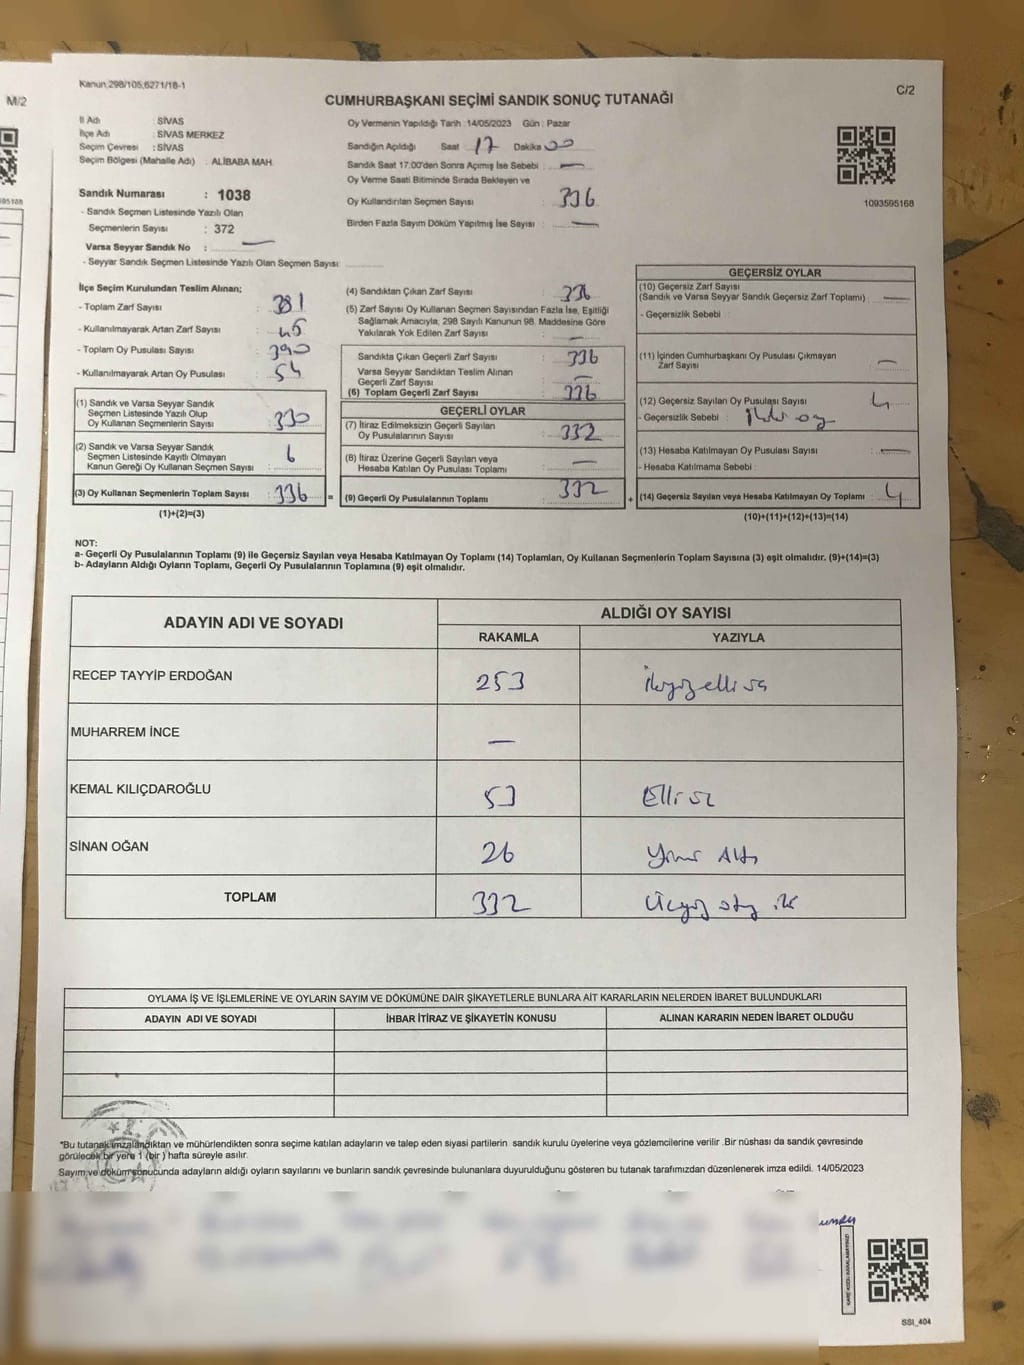 Kanun,298/105,6271/18-1
M/2
C/2
CUMHURBAŞKANI SEÇİMİ SANDIK SONUÇ TUTANAĞI
İl Adı : SİVAS
İlçe Adı : SİVAS MERKEZ
Seçim Çevresi : SİVAS
Seçim Bölgesi (Mahalle Adı) : ALİBABA MAH.
Sandık Numarası : 1038
- Sandık Seçmen Listesinde Yazılı Olan
Seçmenlerin Sayısı : 372
Varsa Seyyar Sandık No : —
- Seyyar Sandık Seçmen Listesinde Yazılı Olan Seçmen Sayısı:
Oy Vermenin Yapıldığı Tarih :14/05/2023 Gün : Pazar
Sandığın Açıldığı Saat 17 Dakika 00
Sandık Saat 17.00'den Sonra Açımış İse Sebebi : —
Oy Verme Saati Bitiminde Sırada Bekleyen ve
Oy Kullandırılan Seçmen Sayısı : 336
Birden Fazla Sayım Döküm Yapılmış İse Sayısı : —
1093595168
İlçe Seçim Kurulundan Teslim Alınan;
- Toplam Zarf Sayısı : 381
- Kullanılmayarak Artan Zarf Sayısı : 45
- Toplam Oy Pusulası Sayısı : 390
- Kullanılmayarak Artan Oy Pusulası : 54
(1) Sandık ve Varsa Seyyar Sandık
Seçmen Listesinde Yazılı Olup
Oy Kullanan Seçmenlerin Sayısı : 330
(2) Sandık ve Varsa Seyyar Sandık
Seçmen Listesinde Kayıtlı Olmayan
Kanun Gereği Oy Kullanan Seçmen Sayısı : 6
(3) Oy Kullanan Seçmenlerin Toplam Sayısı : 336 =
(1)+(2)=(3)
(4) Sandıktan Çıkan Zarf Sayısı : 336
(5) Zarf Sayısı Oy Kullanan Seçmen Sayısından Fazla İse, Eşitliği
Sağlamak Amacıyla, 298 Sayılı Kanunun 98. Maddesine Göre
Yakılarak Yok Edilen Zarf Sayısı : —
Sandıkta Çıkan Geçerli Zarf Sayısı : 336
Varsa Seyyar Sandıktan Teslim Alınan
Geçerli Zarf Sayısı : —
(6) Toplam Geçerli Zarf Sayısı : 336
GEÇERLİ OYLAR
(7) İtiraz Edilmeksizin Geçerli Sayılan
Oy Pusulalarının Sayısı : 332
(8) İtiraz Üzerine Geçerli Sayılan veya
Hesaba Katılan Oy Pusulası Toplamı : —
(9) Geçerli Oy Pusulalarının Toplamı : 332 +
GEÇERSİZ OYLAR
(10) Geçersiz Zarf Sayısı
(Sandık ve Varsa Seyyar Sandık Geçersiz Zarf Toplamı) : —
- Geçersizlik Sebebi :
(11) İçinden Cumhurbaşkanı Oy Pusulası Çıkmayan
Zarf Sayısı : —
(12) Geçersiz Sayılan Oy Pusulası Sayısı : 4
- Geçersizlik Sebebi : oy
(13) Hesaba Katılmayan Oy Pusulası Sayısı : —
- Hesaba Katılmama Sebebi :
(14) Geçersiz Sayılan veya Hesaba Katılmayan Oy Toplamı : 4
(10)+(11)+(12)+(13)=(14)
NOT:
a- Geçerli Oy Pusulalarının Toplamı (9) ile Geçersiz Sayılan veya Hesaba Katılmayan Oy Toplamı (14) Toplamları, Oy Kullanan Seçmenlerin Toplam Sayısına (3) eşit olmalıdır. (9)+(14)=(3)
b- Adayların Aldığı Oyların Toplamı, Geçerli Oy Pusulalarının Toplamına (9) eşit olmalıdır.
ADAYIN ADI VE SOYADI ALDIĞI OY SAYISI
RAKAMLA YAZIYLA
RECEP TAYYİP ERDOĞAN 253 İkiyüzelli üç
MUHARREM İNCE —
KEMAL KILIÇDAROĞLU 53 Elli üç
SİNAN OĞAN 26 Yirmi Altı
TOPLAM 332 Üçyüz otuz iki
OYLAMA İŞ VE İŞLEMLERİNE VE OYLARIN SAYIM VE DÖKÜMÜNE DAİR ŞİKAYETLERLE BUNLARA AİT KARARLARIN NELERDEN İBARET BULUNDUKLARI
ADAYIN ADI VE SOYADI İHBAR İTİRAZ VE ŞİKAYETİN KONUSU ALINAN KARARIN NEDEN İBARET OLDUĞU
*Bu tutanak imzalandıktan ve mühürlendikten sonra seçime katılan adayların ve talep eden siyasi partilerin sandık kurulu üyelerine veya gözlemcilerine verilir .Bir nüshası da sandık çevresinde
görülecek bir yere 1 (bir ) hafta süreyle asılır.
Sayım ve döküm sonucunda adayların aldığı oyların sayılarını ve bunların sandık çevresinde bulunanlara duyurulduğunu gösteren bu tutanak tarafımızdan düzenlenerek imza edildi. 14/05/2023
SSI_404